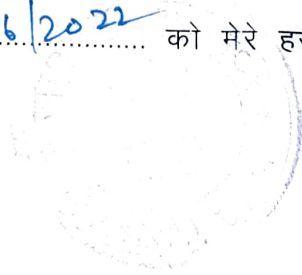 6/2022 को मेरे